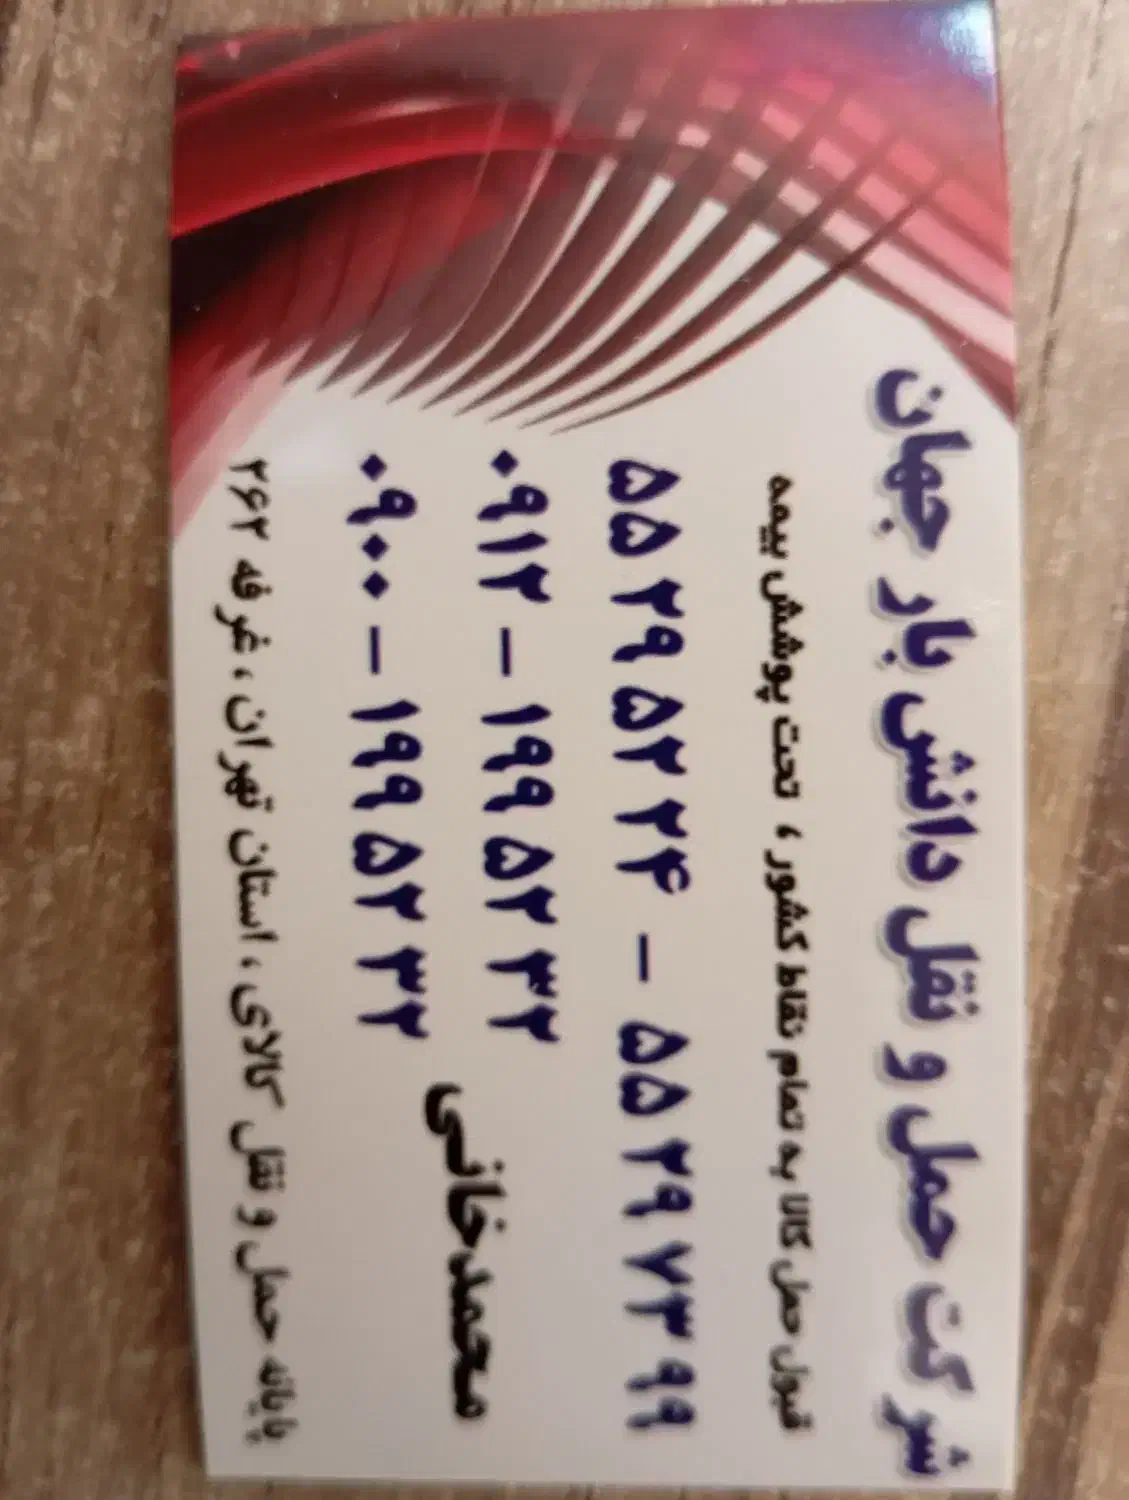 شرکت حمل و نقل دانش بار جهان
قبول حمل کالا به تمام نقاط کشور ، تحت پوشش بیمه
۵۵۲۹۵۲۲۴ - ۵۵۲۹۷۳۹۹
۰۹۱۲ - ۱۹۹۵۲۳۲
۰۹۰۰ - ۱۹۹۵۲۳۲
محمدخانی
پایانه حمل و نقل کالای ، استان تهران ، غرفه ۲۶۲